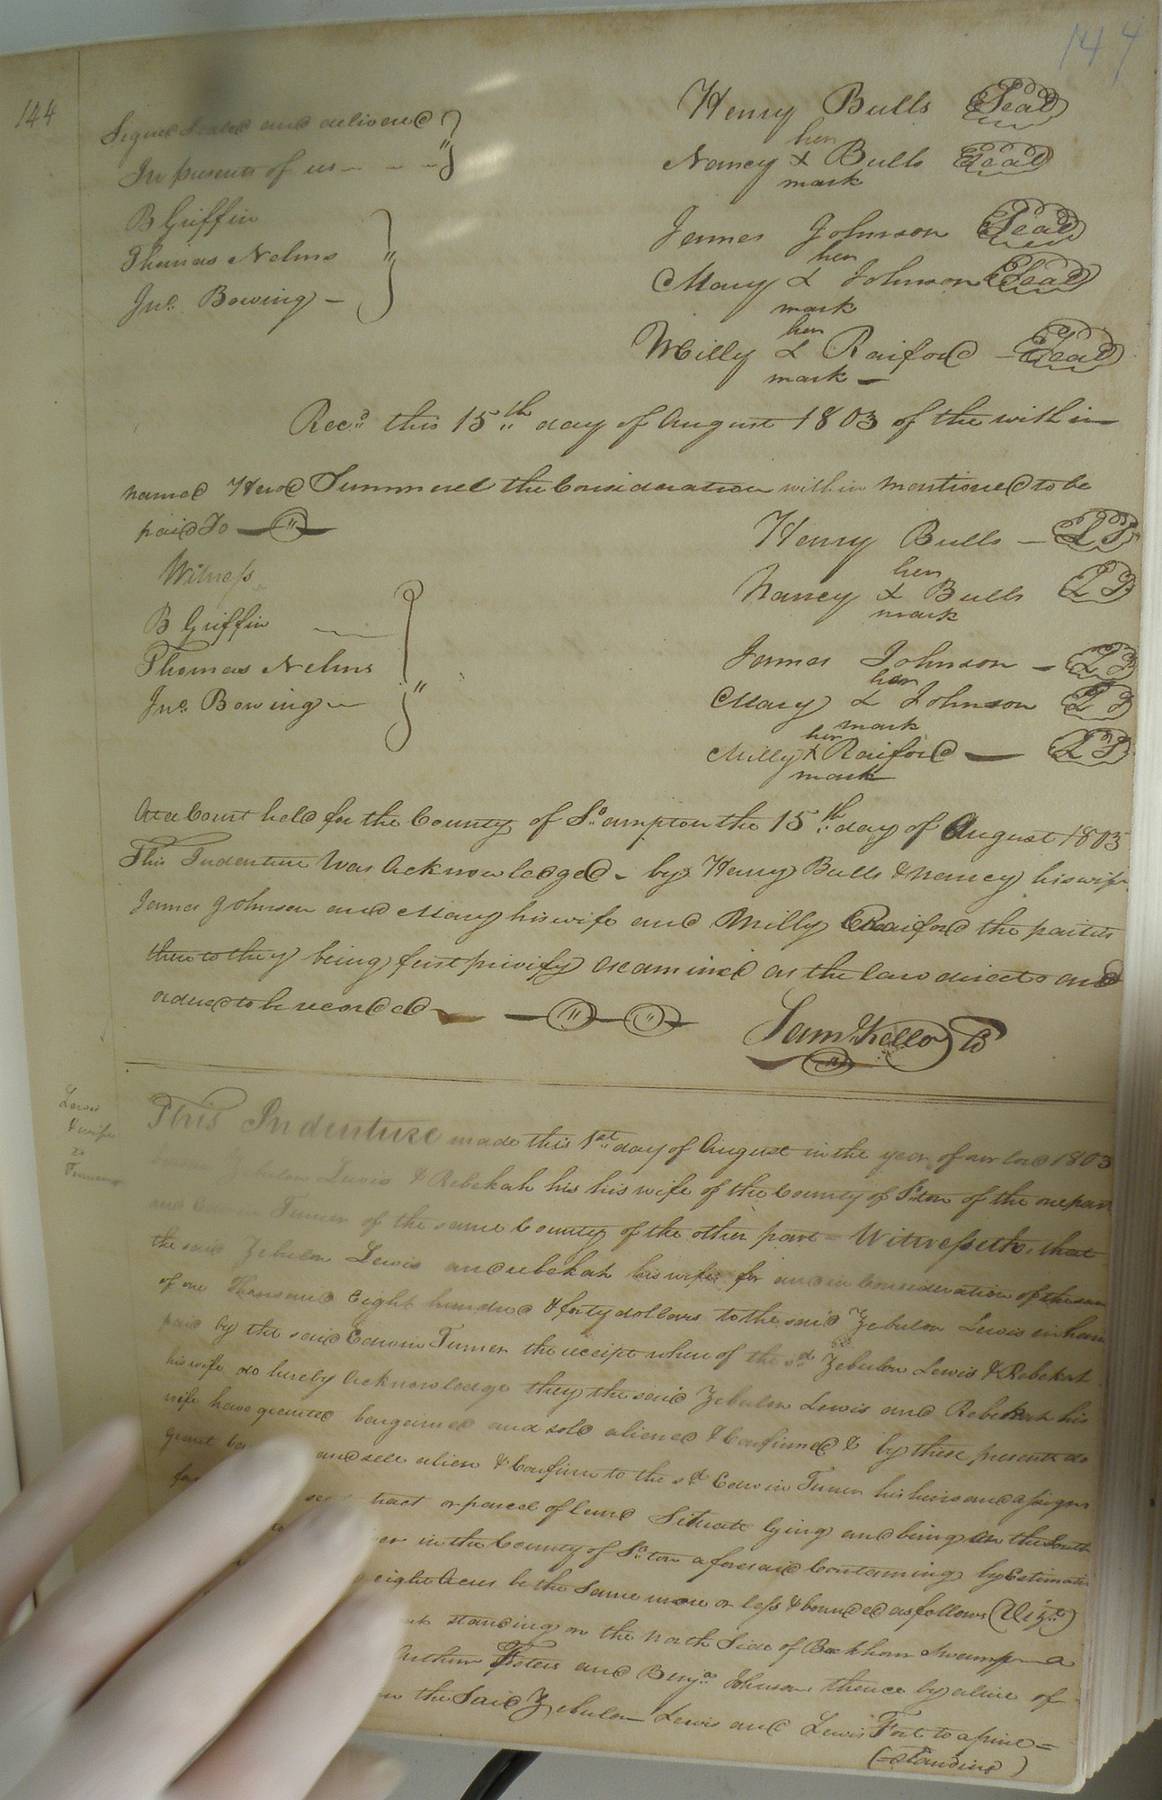 144
144
Signed Sealed and delivered
In presents of us
B Griffin
Thomas Nelms
Jno. Bowing
Henry Bulls Seal
her
Nancy X Bulls Seal
mark
James Johnson Seal
her
Mary X Johnson Seal
mark
her
Milly X Raiford Seal
mark
Recd. this 15th day of August 1803 of the within
named Summerel the Consideration within mentioned to be
paid To
Witness
B Griffin
Thomas Nelms
Jno. Bowing
Henry Bulls LS
her
Nancy X Bulls LS
mark
James Johnson LS
her
Mary X Johnson LS
mark
her
Milly X Raiford LS
mark
At a Court held for the County of So.ampton the 15th day of August 1803
This Indenture Was Acknowledged by Henry Bulls & Nancy his wife
James Johnson and Mary his wife and Milly Raiford the parties
thereto they being first privily examined as the law directs and
ordered to be recorded
Sam Kello
Lewis
& wife
to
This Indenture made this 1st day of August in the year of our lord 1803
Lewis & Rebekah his his wife of the County of So.ton of the one part
and Turner of the same County of the other part = Witnesseth, that
the said Zebulon Lewis and rebekah his wife for and in Consideration of the sum
of one Thousand Eight hundred & forty dollars to the said Zebulon Lewis in hand
paid by the said Edwin Turner the receipt where of the sd Zebulon Lewis & Rebekah
his wife do hereby Acknowledge they the said Zebulon Lewis and Rebekah his
wife have granted bargained and sold aliened & Confirmed & by these presents do
grant and sell alien & Confirm to the sd Edwin Turner his heirs and assigns
tract or parcel of land Situate lying and being on the South
in the County of So.ton aforesaid Containing by Estimation
eight Acres be the Same more or less & bounded as follows (Vizt)
standing on the North Side of Beckhom Swamp a
Arthur and Benja. Johnson thence by a line of
the Said Zebulon Lewis and Lewis Fort to a pine =
(=standing)